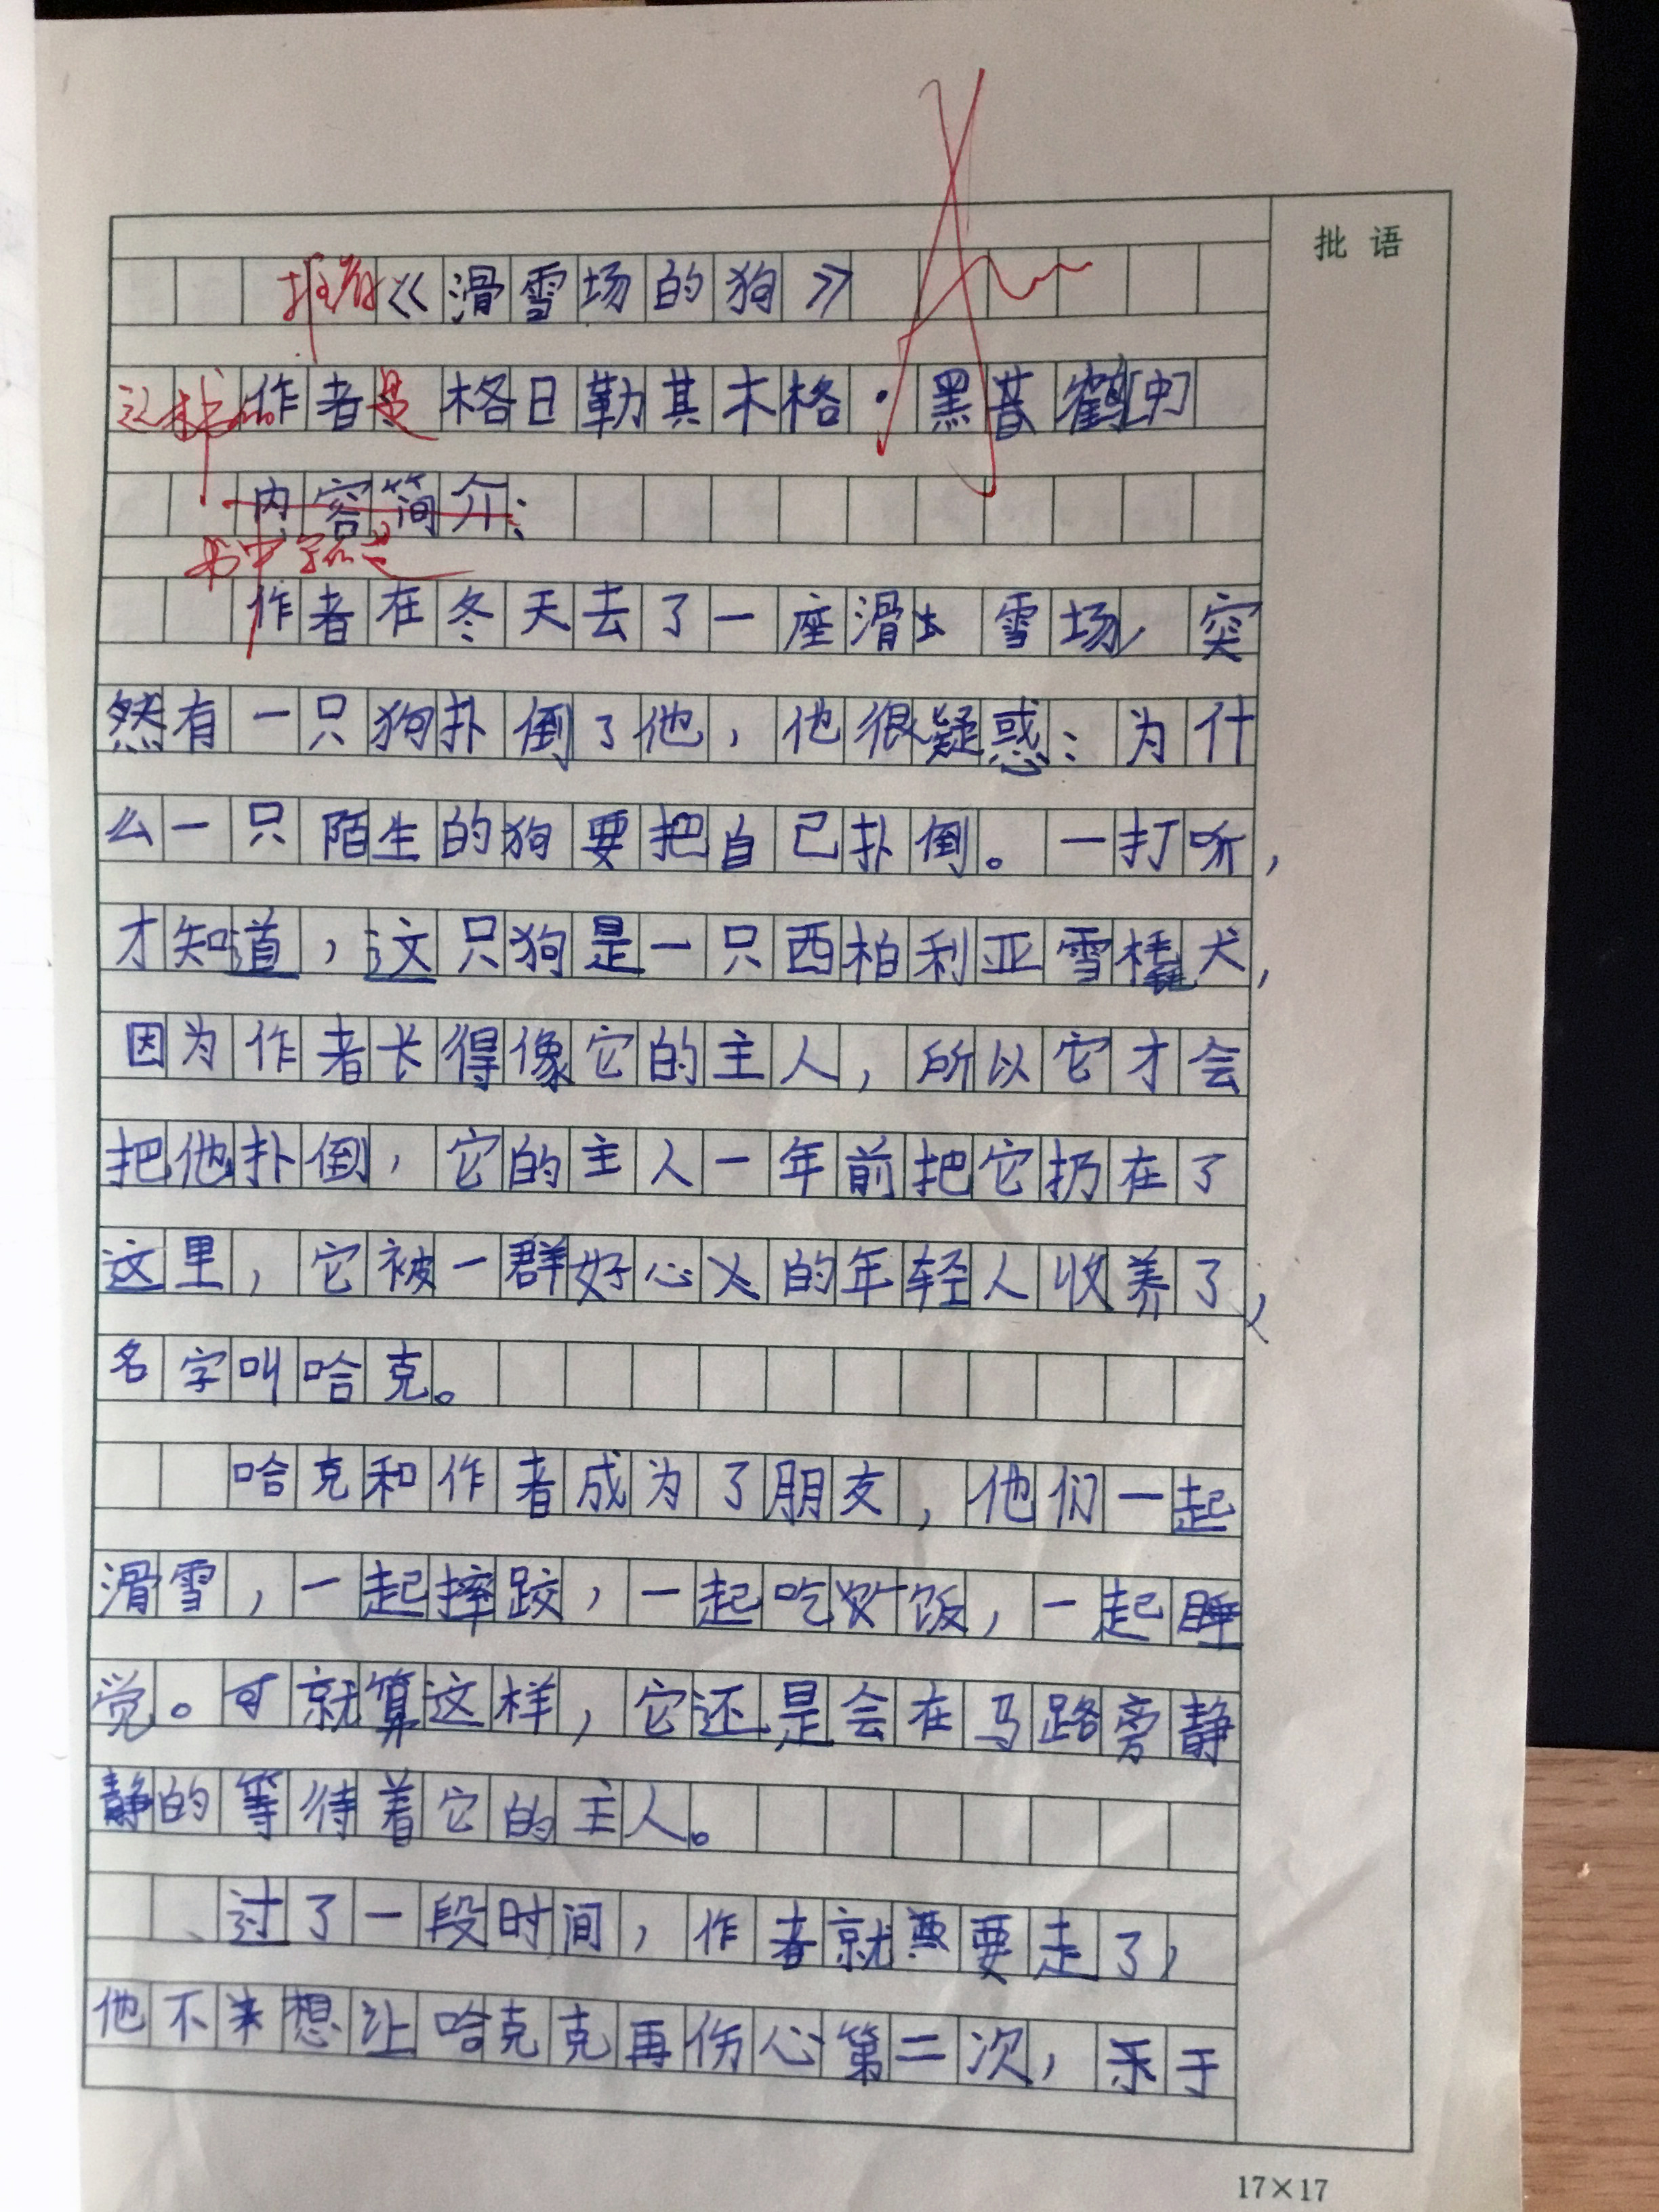 推荐《滑雪场的狗》
批语
这本书的作者是格日勒其木格·黑鹤
内容简介:
书中写的是
作者在冬天去了一座滑雪场,突
然有一只狗扑倒了他,他很疑惑:为什
么一只陌生的狗要把自己扑倒。一打听,
才知道,这只狗是一只西柏利亚雪橇犬,
因为作者长得像它的主人,所以它才会
把他扑倒,它的主人一年前把它扔在了
这里,它被一群好心的年轻人收养了,
名字叫哈克。
哈克和作者成为了朋友,他们一起
滑雪,一起摔跤,一起吃饭,一起睡
觉。可就算这样,它还是会在马路旁静
静的等待着它的主人。
过了一段时间,作者就要走了,
他不想让哈克克再伤心第二次,于
17×17